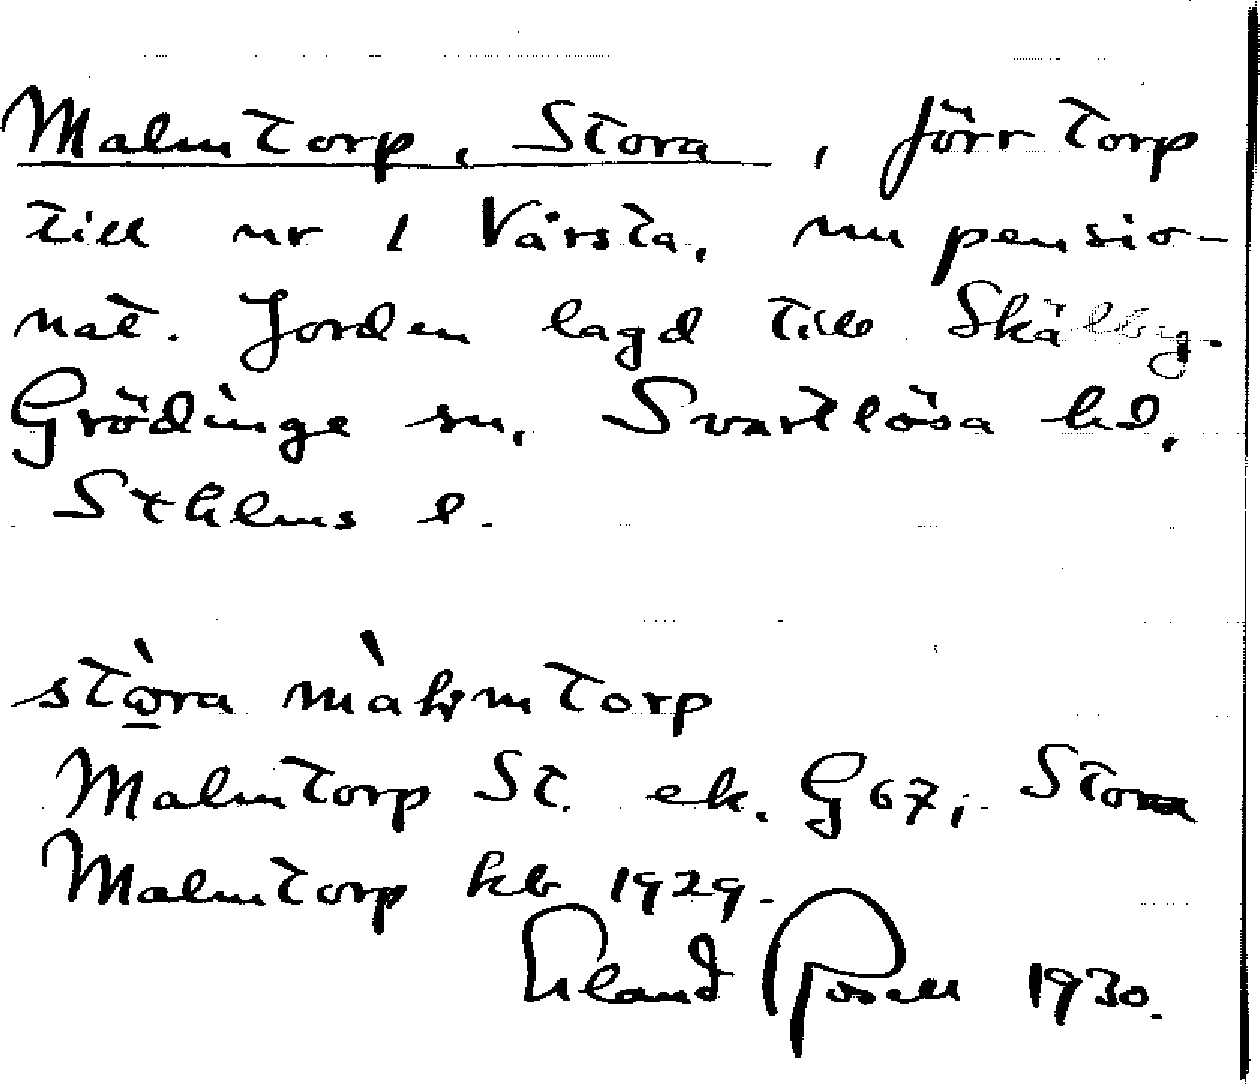 Malmtorp, Stora, förr torp
till nr 1 Vårsta, nu pensio-
nat. Jorden lagd till Skälby.
Grödinge sn, Svartlösa hd,
Sthlms l.
stòra màlmtorp
Malmtorp St. ek. G 67; Stora
Malmtorp kb 1929.
Erland Rosell 1930.